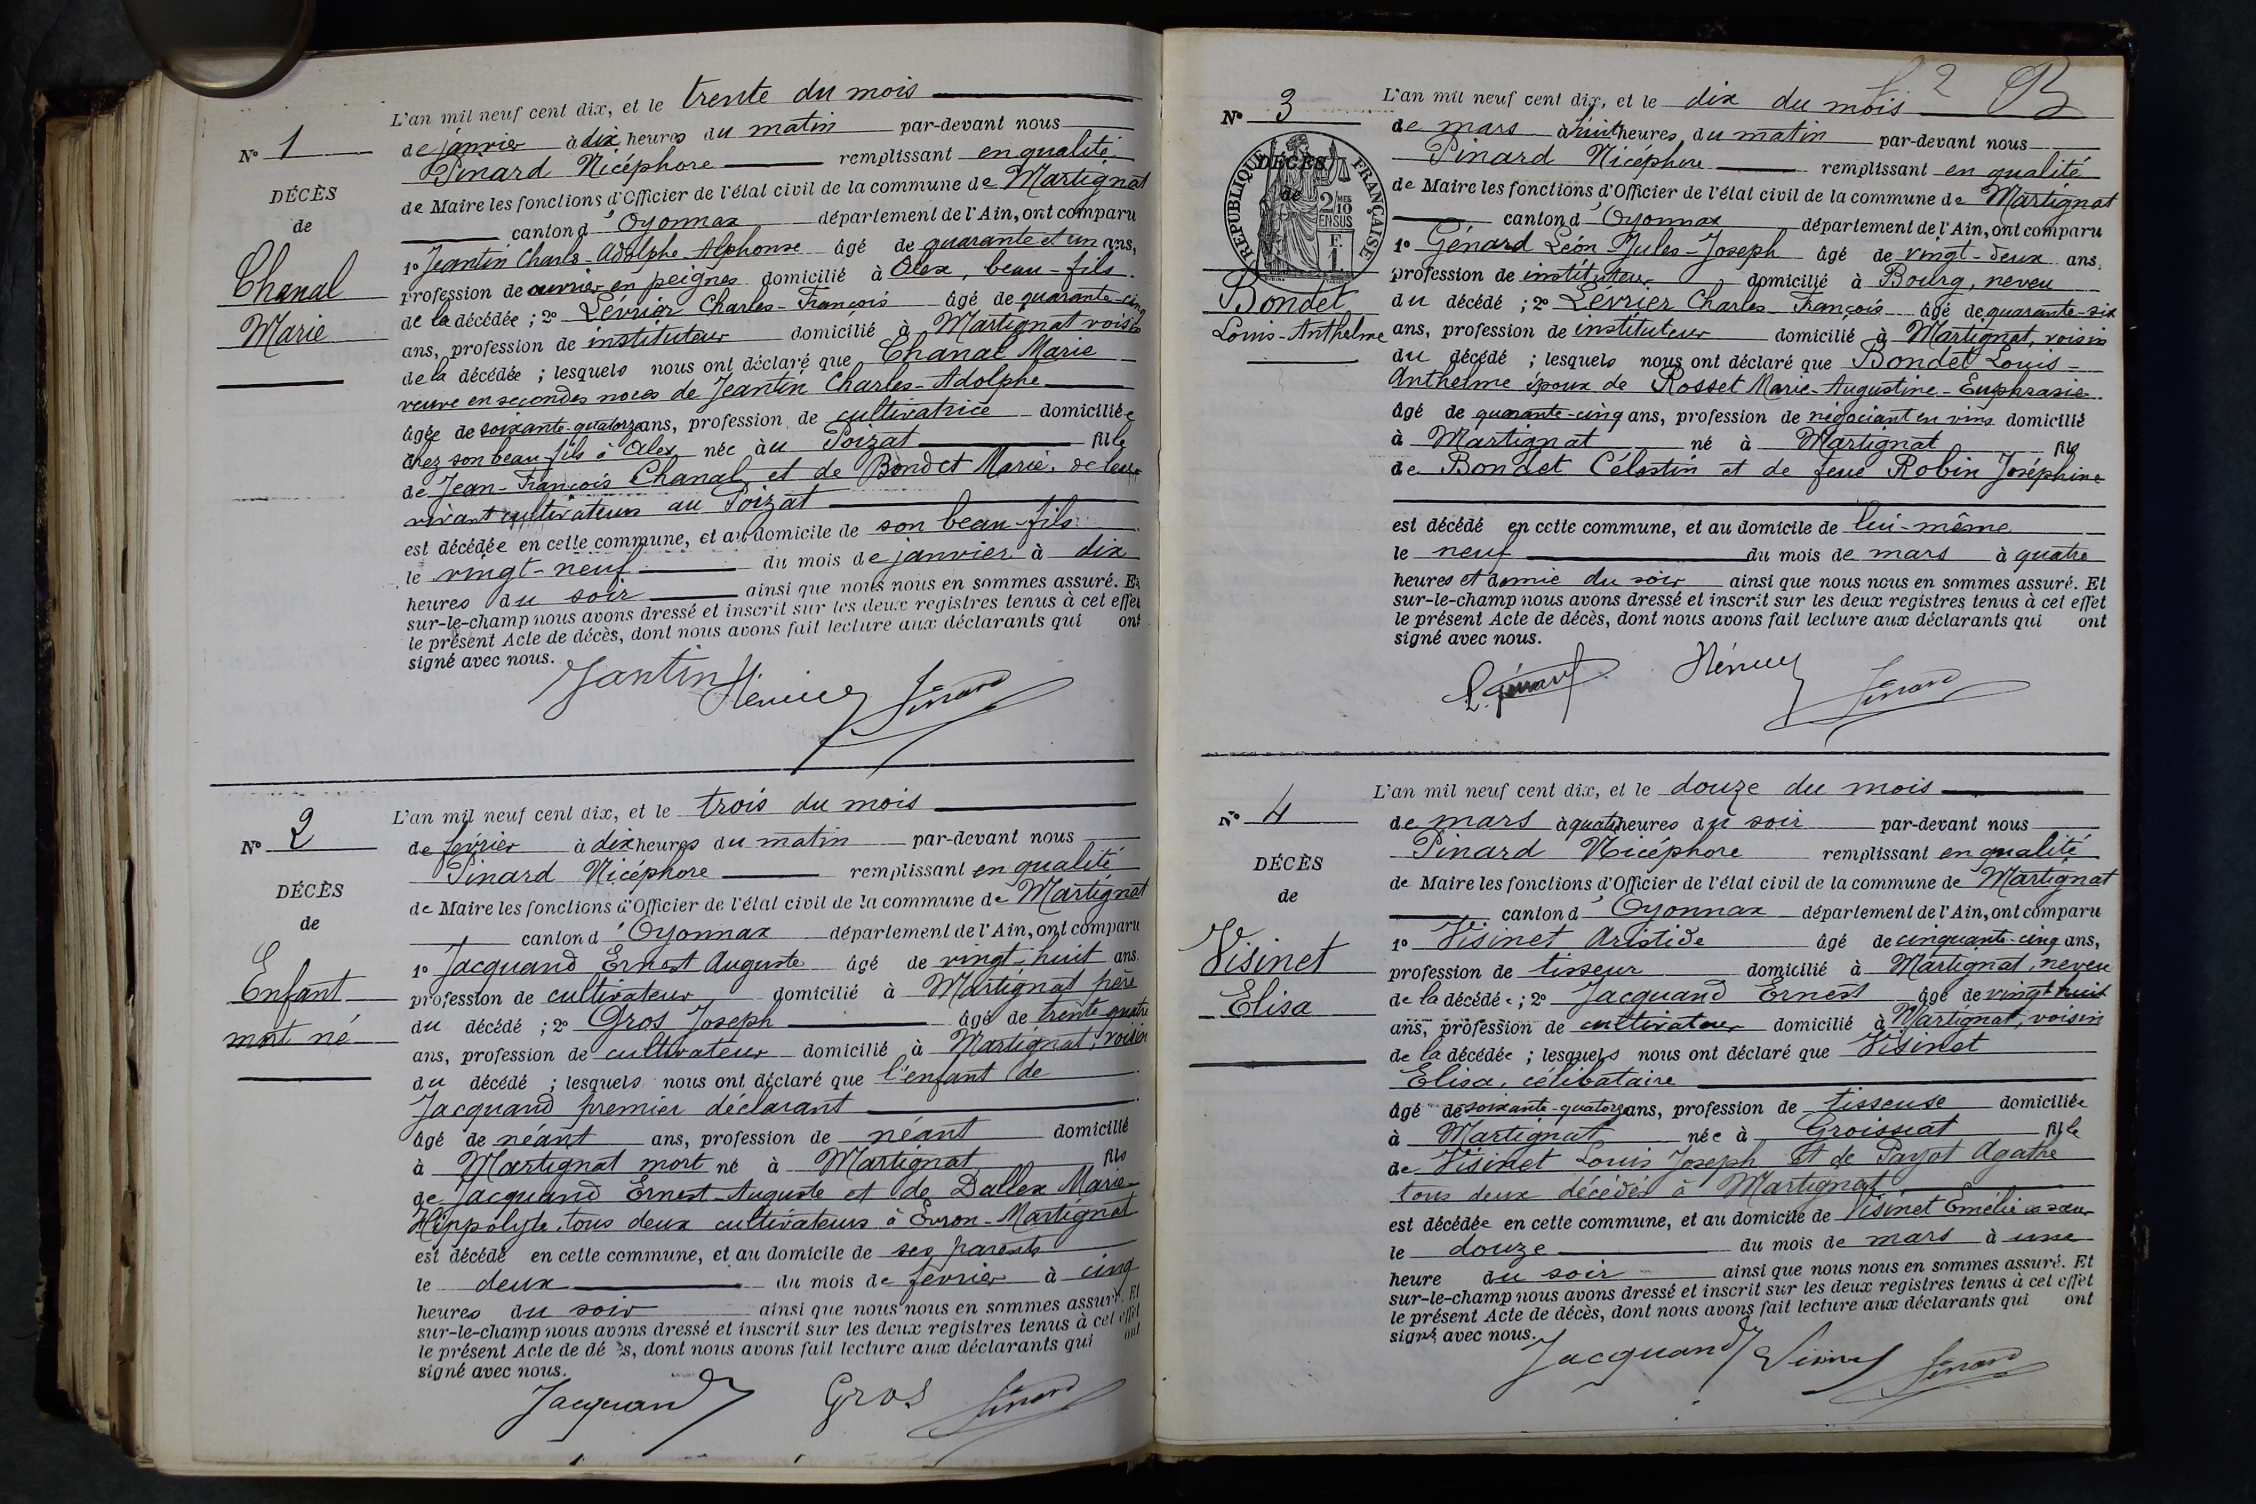 L'an mil neuf cent dix, et le trente du mois
N° 1
de janvier à dix heures du matin par-devant nous
Pinard Nicéphore remplissant en qualité
DÉCÈS
de Maire les fonctions d'Officier de l'état civil de la commune de Martignat
de
canton d'Oyonnax département de l'Ain, ont comparu
1° Jeantin Charles-Adolphe Alphonse âgé de quarante et un ans,
Chanal
profession de ouvrier en peignes domicilié à Alex, beau-fils
de la décédée ; 2° Lévrier Charles-François âgé de quarante-cinq
Marie
ans, profession de instituteur domicilié à Martignat voisin
de la décédée ; lesquels nous ont déclaré que Chanal Marie
veuve en secondes noces de Jeantin Charles-Adolphe
âgée de soixante-quatorze ans, profession de cultivatrice domiciliée
chez son beau-fils à Alex née au Poizat fille
de Jean-François Chanal et de Bondet Marie, de leur
vivant cultivateurs au Poizat
est décédée en cette commune, et au domicile de son beau-fils
le vingt-neuf du mois de janvier à dix
heures du soir ainsi que nous nous en sommes assuré. Et
sur-le-champ nous avons dressé et inscrit sur les deux registres tenus à cet effet
le présent Acte de décès, dont nous avons fait lecture aux déclarants qui ont
signé avec nous.
Jantin Pinard
L'an mil neuf cent dix, et le trois du mois
N° 2
de février à dix heures du matin par-devant nous
Pinard Nicéphore remplissant en qualité
DÉCÈS
de Maire les fonctions d'Officier de l'état civil de la commune de Martignat
de
canton d'Oyonnax département de l'Ain, ont comparu
1° Jacquand Ernest Auguste âgé de vingt-huit ans
Enfant
profession de cultivateur domicilié à Martignat père
du décédé ; 2° Gros Joseph âgé de trente-quatre
mort né
ans, profession de cultivateur domicilié à Martignat, voisin
du décédé ; lesquels nous ont déclaré que l'enfant de
Jacquand premier déclarant
âgé de néant ans, profession de néant domicilié
à Martignat mort né à Martignat fils
de Jacquand Ernest-Auguste et de Dallex Marie-
Hippolyte, tous deux cultivateurs à Evron-Martignat
est décédé en cette commune, et au domicile de ses parents
le deux du mois de février à cinq
heures du soir ainsi que nous nous en sommes assuré. Et
sur-le-champ nous avons dressé et inscrit sur les deux registres tenus à cet effet
le présent Acte de décès, dont nous avons fait lecture aux déclarants qui ont
signé avec nous.
Jacquand Gros Pinard
2
L'an mil neuf cent dix, et le dix du mois
N° 3
de mars à huit heures du matin par-devant nous
Pinard Nicéphore remplissant en qualité
RÉPUBLIQUE FRANÇAISE
2 MES 10 EN SUS
F. 1
DÉCÈS
de Maire les fonctions d'Officier de l'état civil de la commune de Martignat
de
canton d'Oyonnax département de l'Ain, ont comparu
1° Génard Léon Jules-Joseph âgé de vingt-deux ans
profession de instituteur domicilié à Bourg, neveu
Bondet
du décédé ; 2° Lévrier Charles-François âgé de quarante-six
Louis-Anthelme
ans, profession de instituteur domicilié à Martignat, voisin
du décédé ; lesquels nous ont déclaré que Bondet Louis-
Anthelme époux de Rosset Marie-Augustine-Euphrasie
âgé de quarante-cinq ans, profession de négociant en vins domicilié
à Martignat né à Martignat fils
de Bondet Célestin et de feue Robin Joséphine
est décédé en cette commune, et au domicile de lui-même
le neuf du mois de mars à quatre
heures et demie du soir ainsi que nous nous en sommes assuré. Et
sur-le-champ nous avons dressé et inscrit sur les deux registres tenus à cet effet
le présent Acte de décès, dont nous avons fait lecture aux déclarants qui ont
signé avec nous.
Pinard
L'an mil neuf cent dix, et le douze du mois
N° 4
de mars à quatre heures du soir par-devant nous
Pinard Nicéphore remplissant en qualité
DÉCÈS
de Maire les fonctions d'Officier de l'état civil de la commune de Martignat
de
canton d'Oyonnax département de l'Ain, ont comparu
Visinet
1° Visinet Aristide âgé de cinquante-cinq ans,
profession de tisseur domicilié à Martignat, neveu
Elisa
de la décédée ; 2° Jacquand Ernest âgé de vingt huit
ans, profession de cultivateur domicilié à Martignat, voisin
de la décédée ; lesquels nous ont déclaré que Visinet
Elisa, célibataire
âgé de soixante-quatorze ans, profession de tisseuse domiciliée
à Martignat née à Groissiat fille
de Visinet Louis Joseph et de Payot Agathe
tous deux décédés à Martignat
est décédée en cette commune, et au domicile de Visinet Emélie sa sœur
le douze du mois de mars à une
heure du soir ainsi que nous nous en sommes assuré. Et
sur-le-champ nous avons dressé et inscrit sur les deux registres tenus à cet effet
le présent Acte de décès, dont nous avons fait lecture aux déclarants qui ont
signé avec nous.
Jacquand Pinard